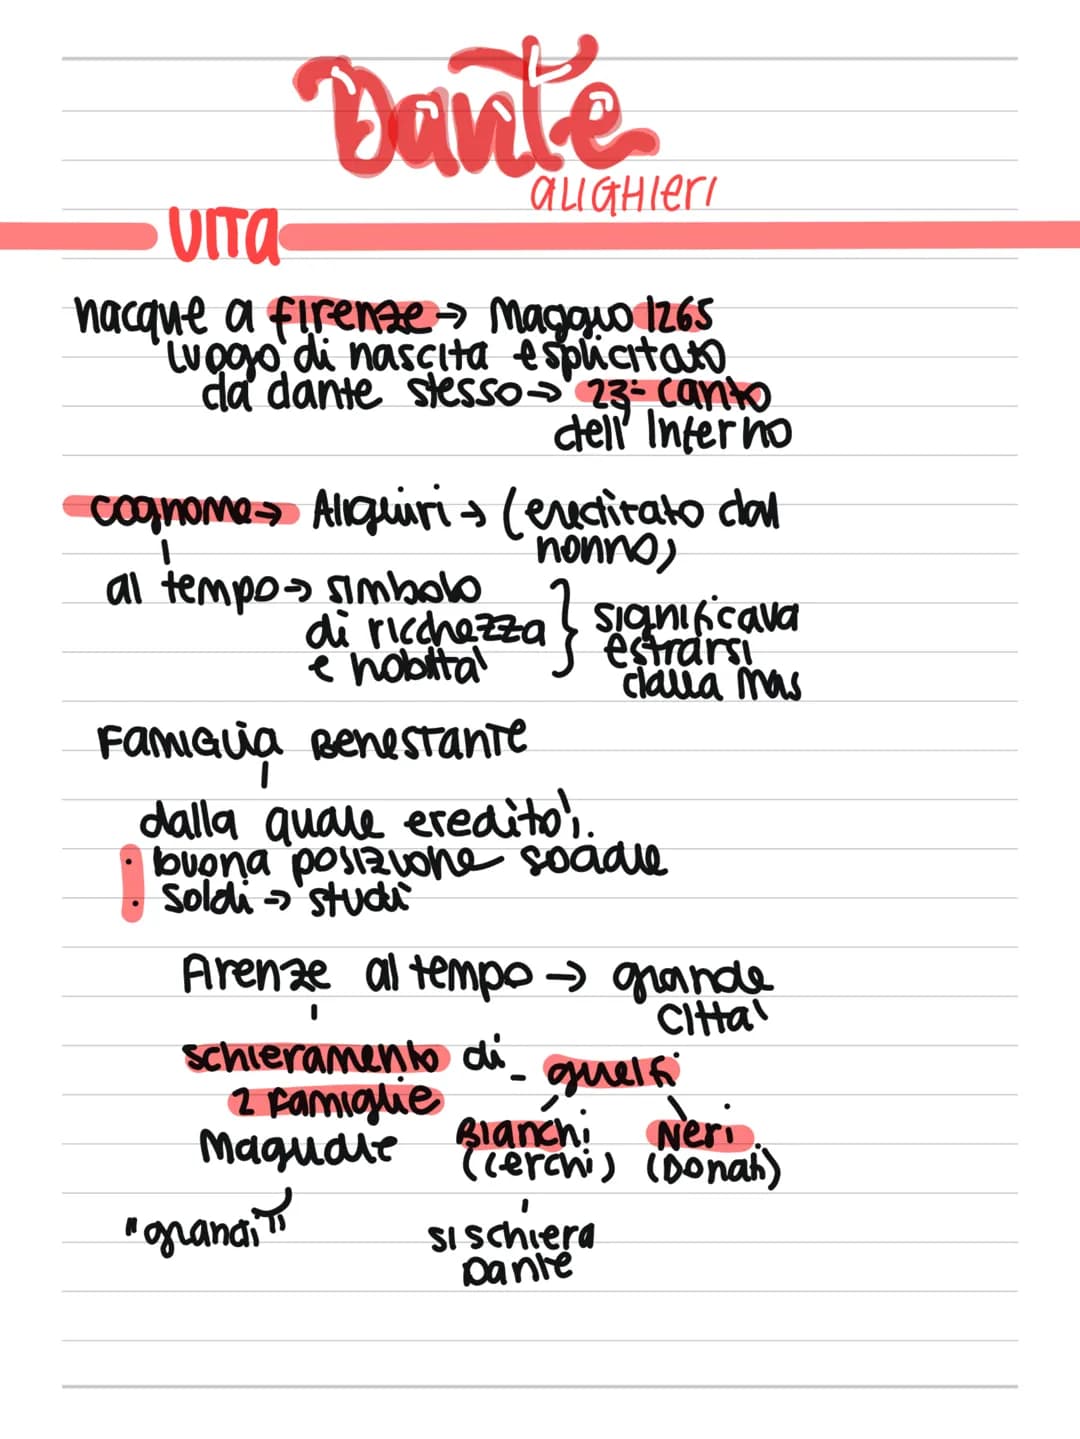 Dante
ALIGHIERI
VITA
nacque a Firenze → Maggio 1265
luogo di nascita esplicitato
da dante stesso → 23° canto
dell' Inferno
cognome → Alighiri → (ereditato dal
nonno)
al tempo → simbolo
di ricchezza } significava
e nobiltà estrarsi
dalla mas
Famiglia Benestante
dalla quale ereditò:
• buona posizione sociale
• soldi → studi
Firenze al tempo → grande
città
schieramento di - guelfi
2 famiglie
Magnate Bianchi Neri
(Cerchi) (Donati)
"grandi" si schiera
Dante